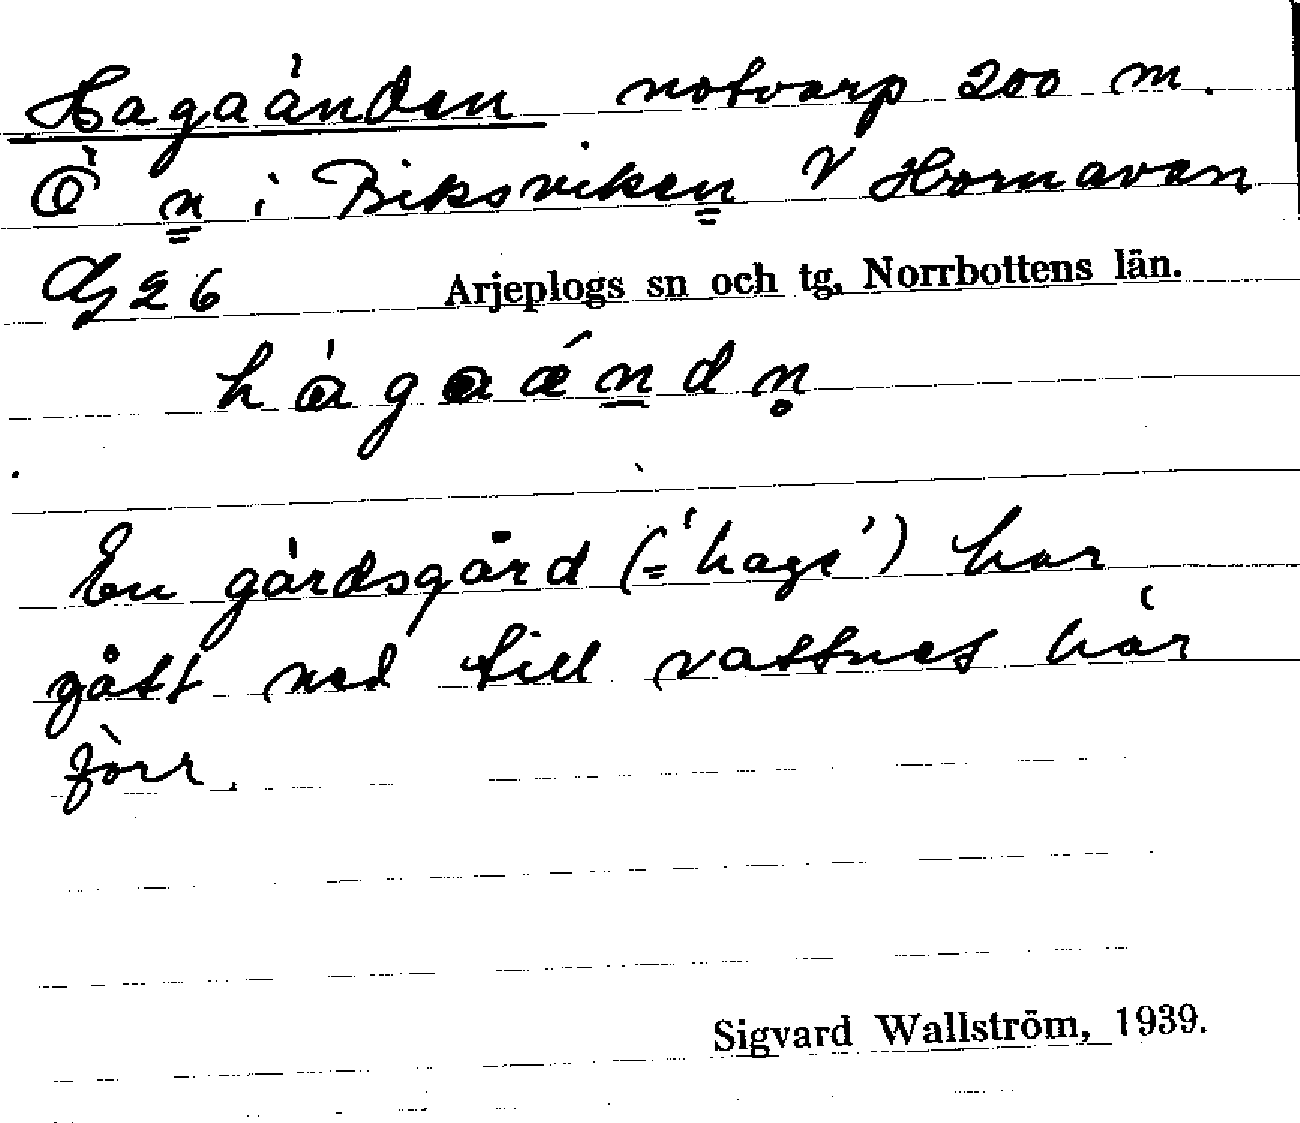 Hagaänden notvarp 200 m.
Ö n i Biksviken V Hornavan
26 Arjeplogs sn och tg, Norrbottens län.
En gärdsgård (= 'hage') har
gått ned till vattnet här
förr.
Sigvard Wallström, 1939.